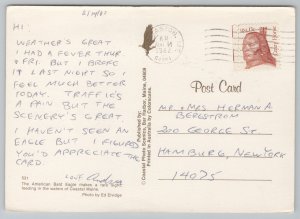 8/14/82
HI -
WEATHER'S GREAT
I HAD A FEVER THUR.
+ FRI. BUT I BROKE
IT LAST NIGHT SO I
FEEL MUCH BETTER
TODAY. TRAFFIC'S
A PAIN BUT THE
SCENERY'S GREAT.
I HAVEN'T SEEN AN
EAGLE BUT I FIGURED
YOU'D APPRECIATE THE
CARD.
LOVE
531
The American Bald Eagle makes a rare sight
feeding in the waters of coastal Maine.
Photo by Ed Elvidge
Published by:
© Coastal Photo Scenics, Bar Harbor, Maine, 04609
Printed in Australia by Colorscans.
1982
USA 13c
Post Card
MR. + MRS. HERMAN A.
BERGSTROM
200 GEORGE ST.
HAMBURG, NEW YORK
14075